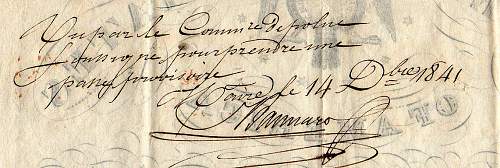 Vu par le Commre de police
Soussigné pour prendre une
passe provisoire
Havre le 14 Dbre 1841